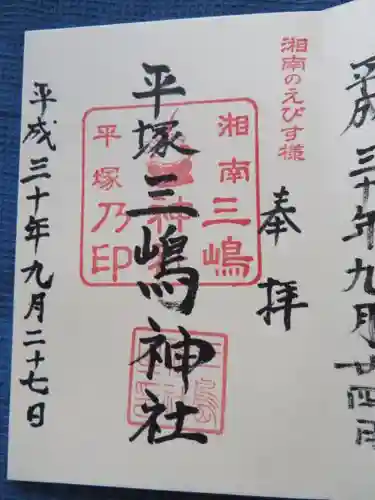 平成三十年九月廿四日
湘南のえびす様
奉拝
湘南三嶋
神社
平塚乃印
平塚三嶋神社
平成三十年九月二十七日